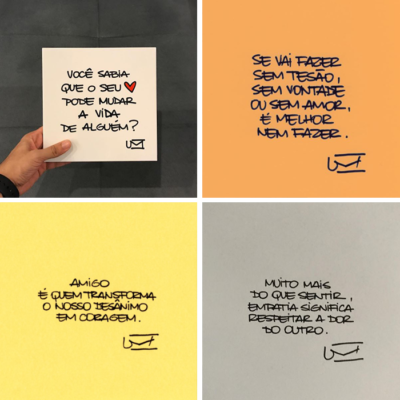 VOCÊ SABIA
QUE O SEU ❤
PODE MUDAR
A VIDA
DE ALGUÉM?
SE VAI FAZER
SEM TESÃO,
SEM VONTADE
OU SEM AMOR,
É MELHOR
NEM FAZER.
AMIGO
É QUEM TRANSFORMA
O NOSSO DESÂNIMO
EM CORAGEM.
MUITO MAIS
DO QUE SENTIR,
EMPATIA SIGNIFICA
RESPEITAR A DOR
DO OUTRO.